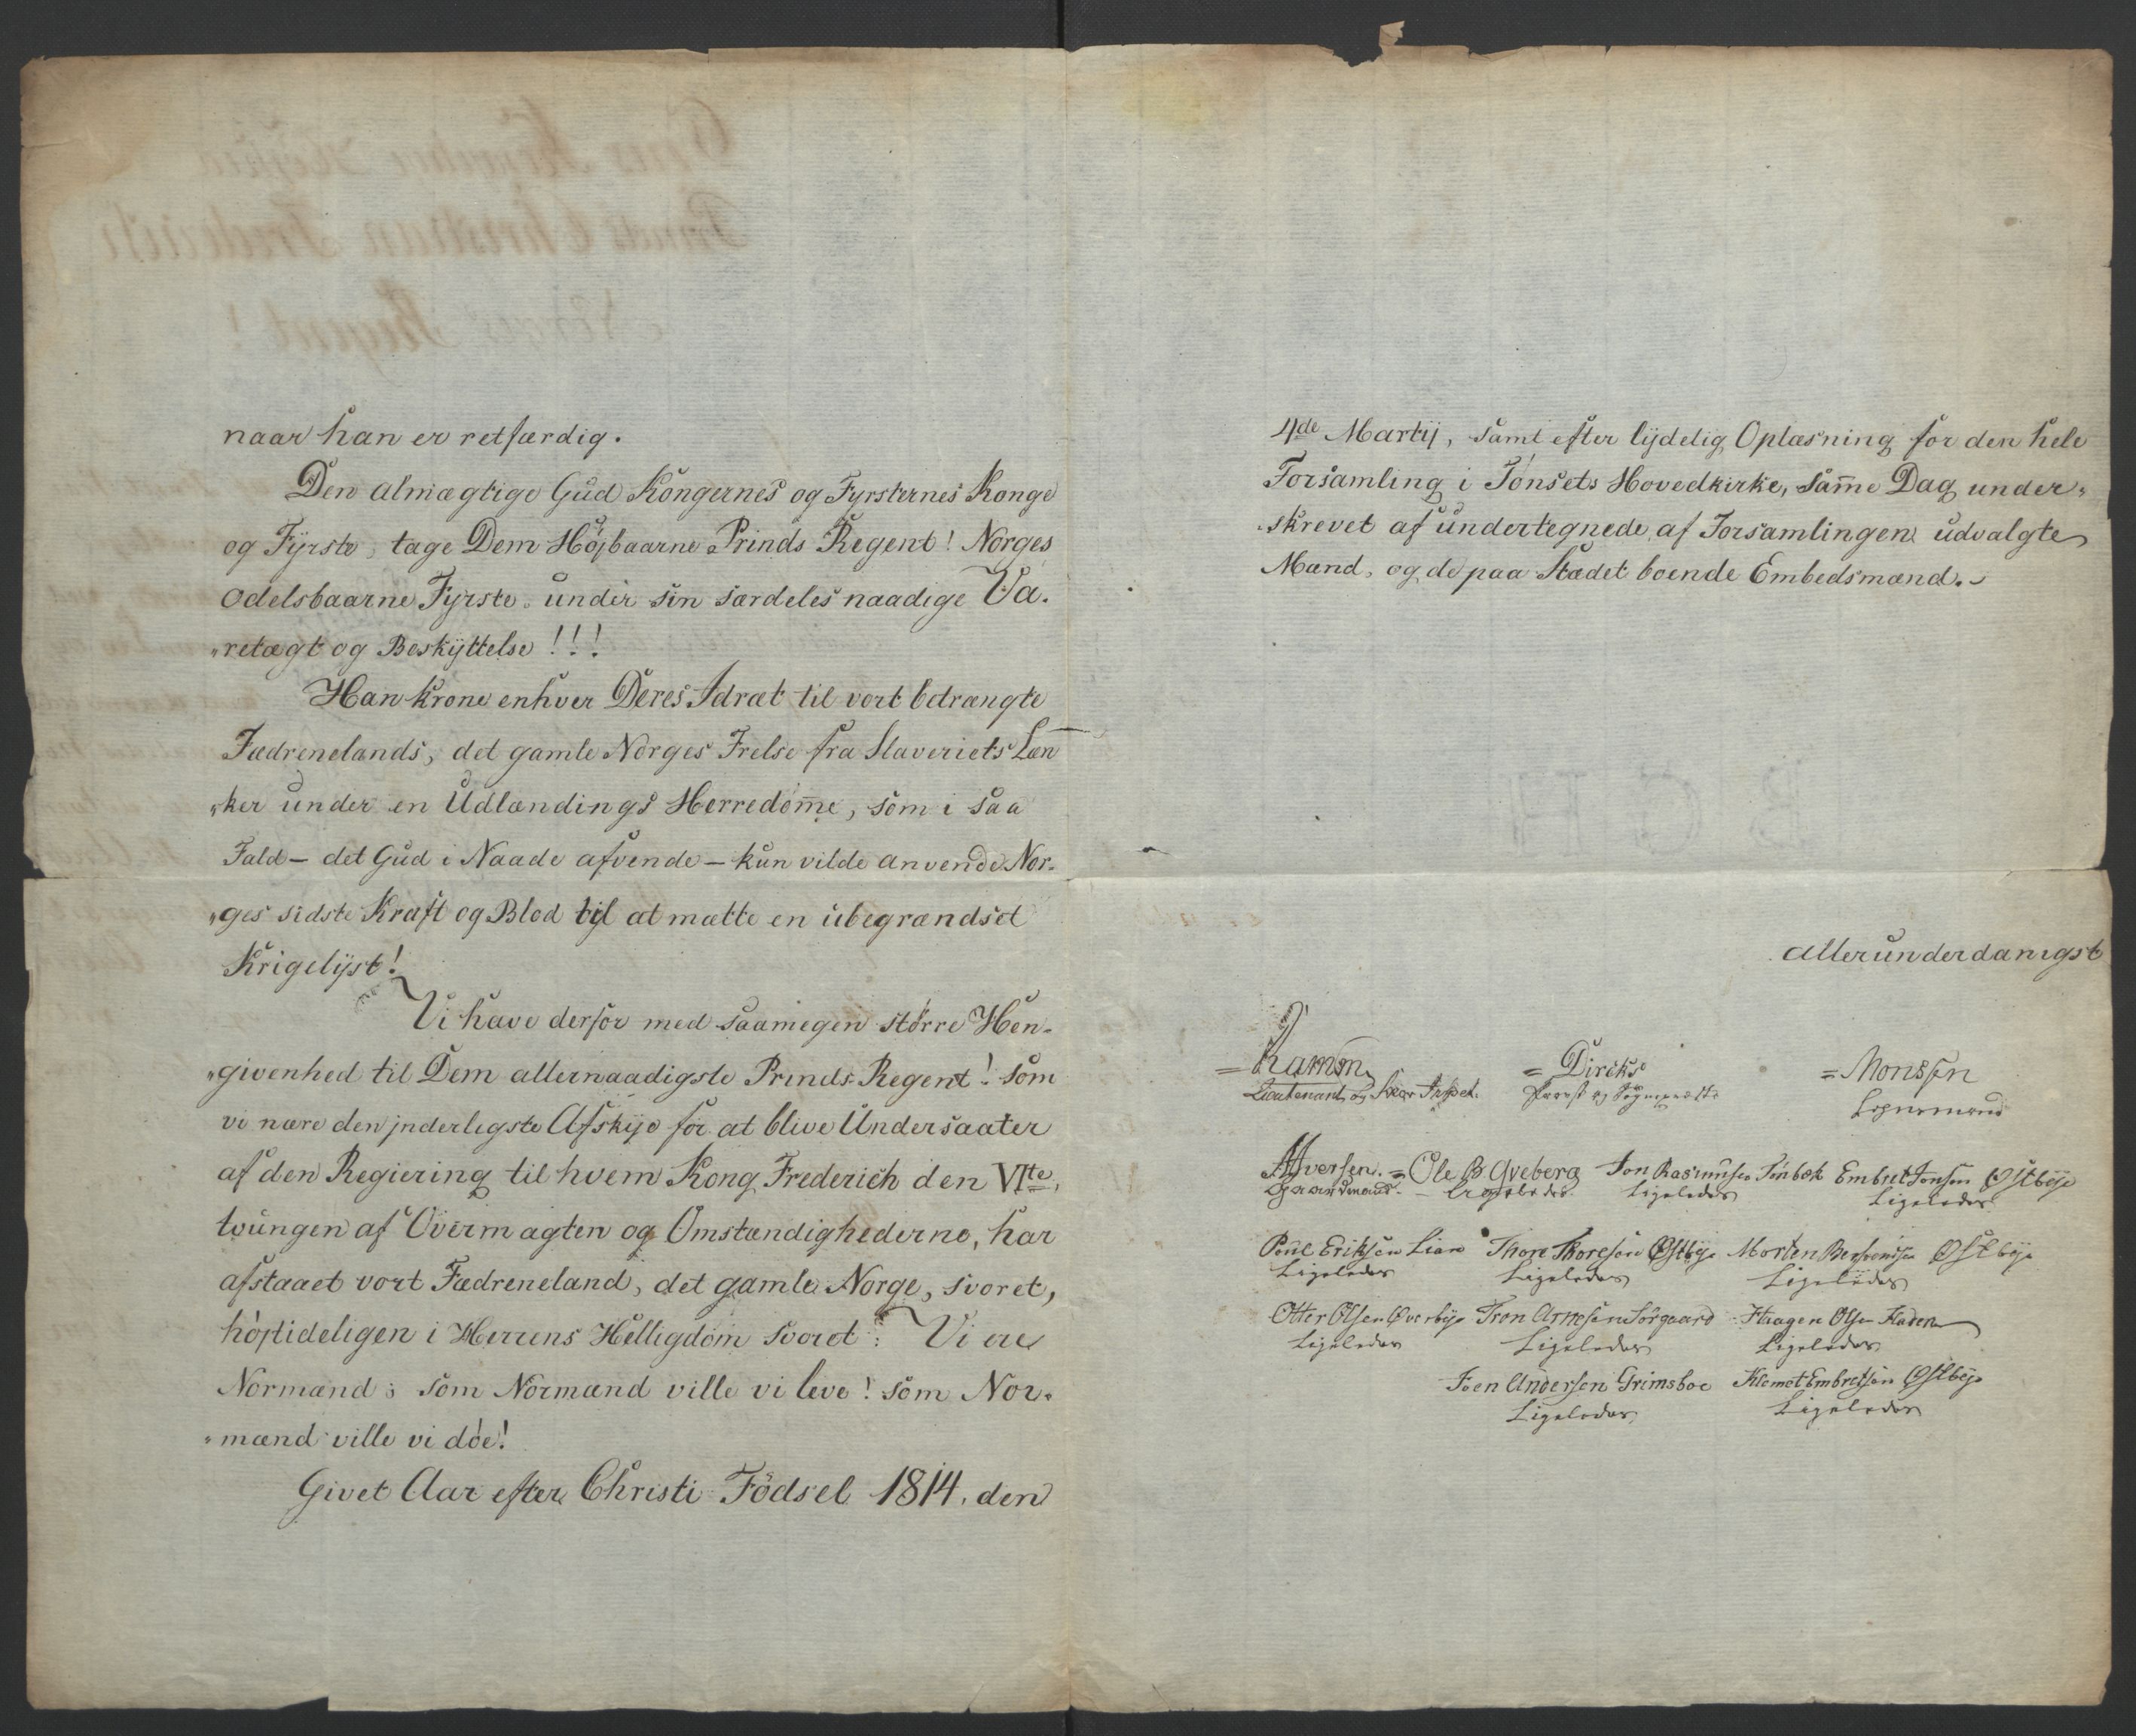 naar han er retfærdig.
Den almægtige Gud Kongernes og Fyrsternes Konge
og Fyrste, tage Dem Höjbaarne Prinds Regent! Norges
Odelsbaarne Fyrste, under sin særdeles naadige Va-
„retægt og Beskyttelse!!!
Han krone enhver Deres Idræt til vort betrængte
Fædrenelands, det gamle Norges Frelse fra Slaveriets Læn
„ker under en Udlændings Herredom̅e, som i saa
Fald — det Gud i Naade afvende — kun vilde anvende Nor-
„ges sidste Kraft og Blod til at mætte en ubegrændset
Krigelyst!
Vi have derfor med saamegen större Hen-
„givenhed til Dem allernaadigste Prinds Regent! som
vi nære den inderligste Afskye for at blive Undersaater
af den Regiering til hvem Kong Frederich den VIte,
tvungen af Overmagten og Omstændighederne, har
afstaaet vort Fædreneland, det gamle Norge, svoret,
höjtideligen i Herrens Helligdom svoret: Vi ere
Normænd; som Normænd ville vi leve! som Nor-
„mænd ville vi döe!
Givet Aar efter Christi Födsel 1814, den
4de Martij, samt efter lydelig Oplæsning for den hele
Forsamling i Tönsets Hovedkirke, sam̅e Dag under-
„skrevet af undertegnede, af Forsamlingen udvalgte
Mænd, og de paa Stædet boende Embedsmænd.
allerunderdanigst
= Ramm = Diriks = Monssen
Lieutenant og Skov Inspect. Provst og Sognepræst Lensmand
Iversen. = Ole B. Gveberg Jon Rasmusen Tönbek Embret Jonsen Østbye
Gaardmand. Ligeledes Ligeledes Ligeledes
Poul Eriksen Lian Thore Thoresen Østbye Morten Østbye
Ligeledes Ligeledes Ligeledes
Otter Olsen Øverbye Tron Arnesen Sörgaard Haagen Olsen
Ligeledes Ligeledes Ligeledes
Joen Andersen Grimsboe Klemet Embretsen Østbye
Ligeledes Ligeledes